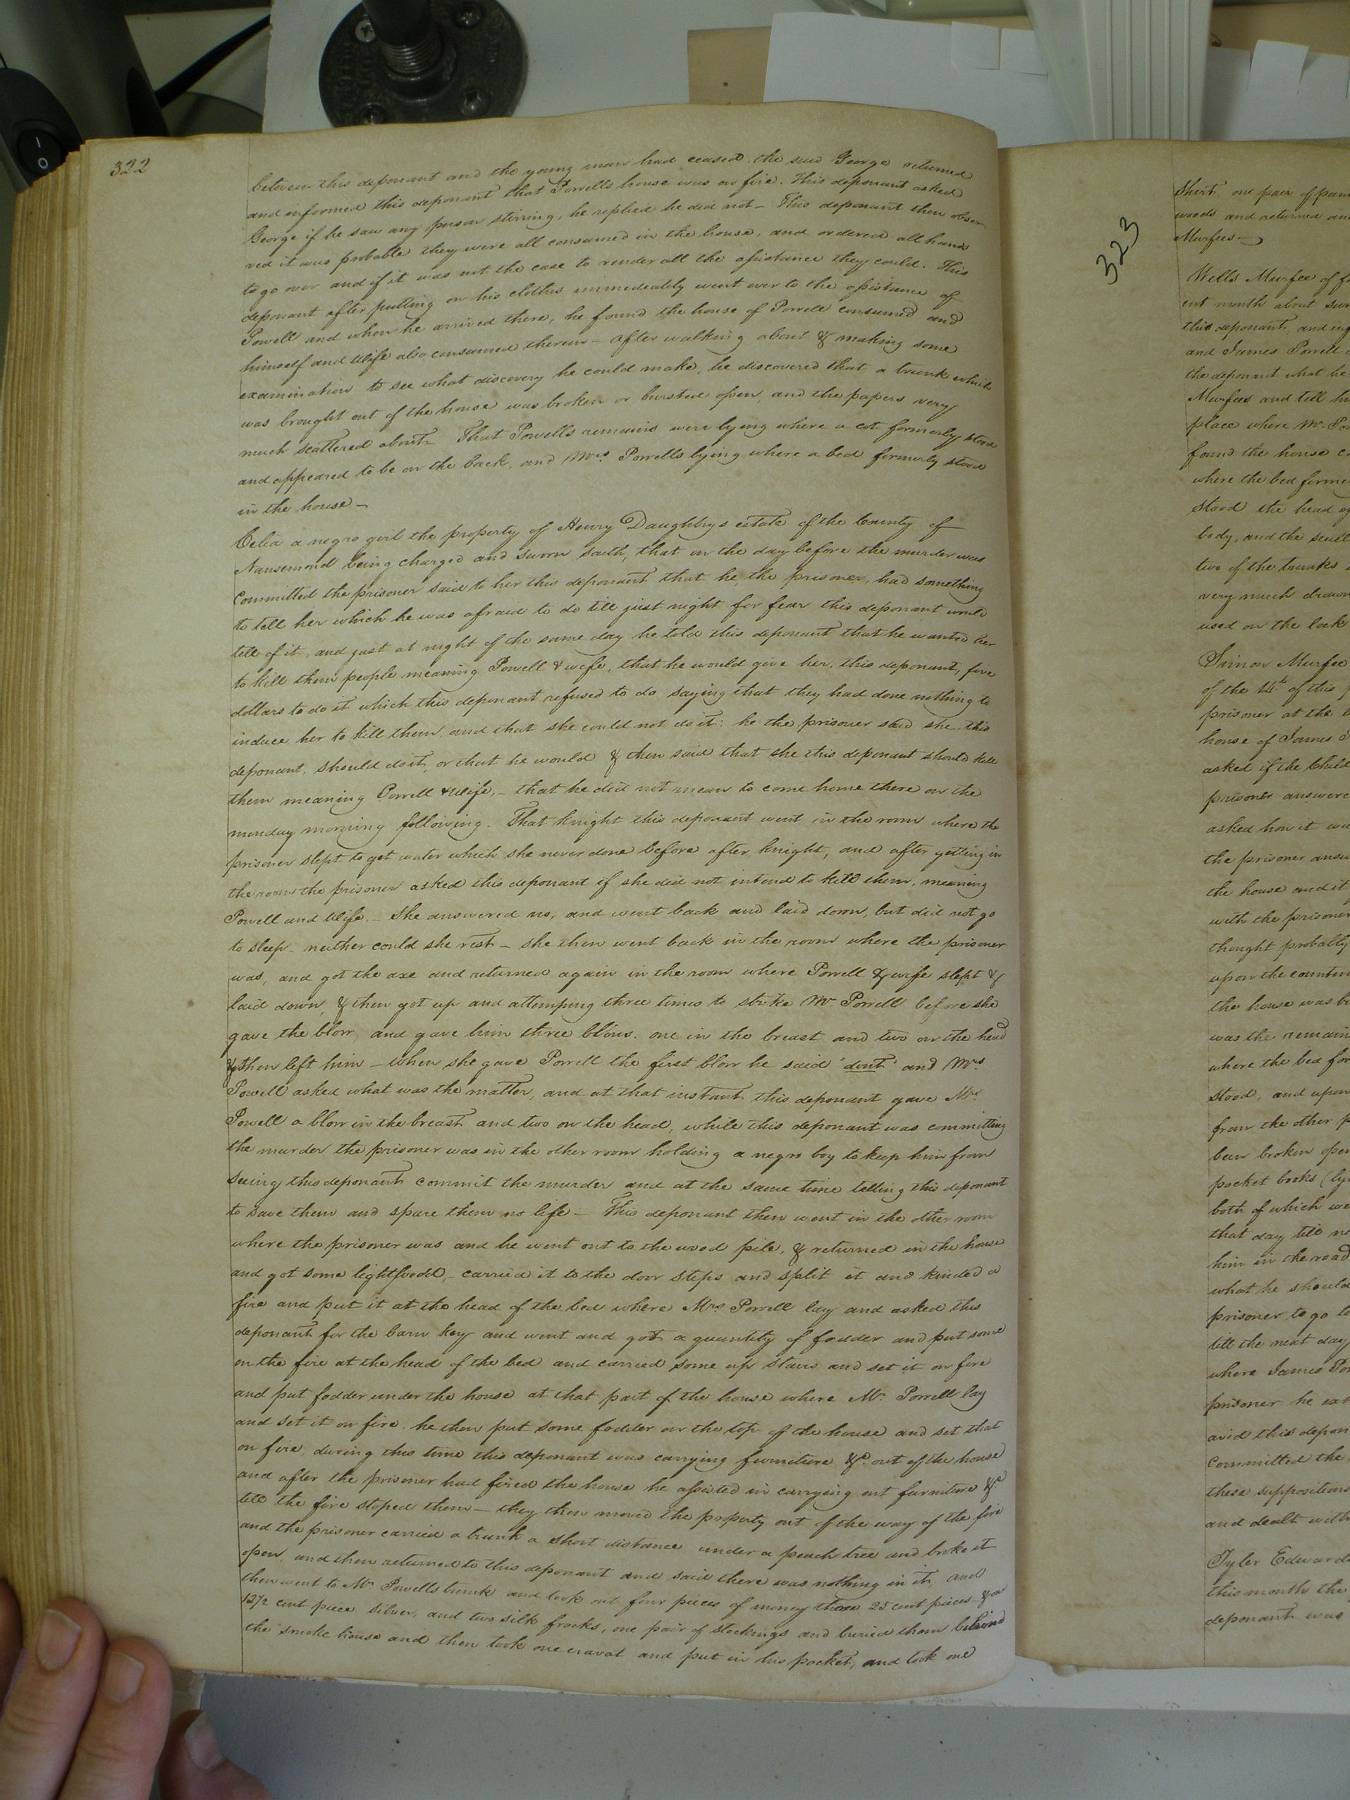 322
between this deponant and the young man had ceased the said George returned
and informed this deponant that Powells house was on fire. This deponant asked
George if he saw any person stirring, he replied he did not — This deponant then obser
ved it was probable they were all consumed in the house, and ordered all hands
to go over and if it was not the case to render all the assistance they could. This
deponant after putting on his clothes immediately went over to the assistance of
Powell and when he arrived there, he found the house of Powell consumed and
himself and Wife also consumed therein — after walking about & making some
examination to see what discovery he could make, he discovered that a trunk which
was brought out of the house was broken or bursted open, and the papers very
much scattered about — That Powells remains were lying where a cot formerly stood
and appeared to be on the back, and Mrs. Powells lying where a bed formerly stood
in the house —
Celia a negro girl the property of Henry Daughtrys estate of the County of
Nansemond being charged and sworn saith, that on the day before the murder was
committed the prisoner said to her this deponant that he the prisoner, had something
to tell her which he was afraid to do till just night for fear this deponant would
tell of it, and just at night of the same day he told this deponant that he wanted her
to kill them people meaning Powell & wife, that he would give her, this deponant, five
dollars to do it which this deponant refused to do saying that they had done nothing to
induce her to kill them and that she could not do it: he the prisoner said she, this
deponant, should do it, or that he would & then said that she this deponant should kill
them meaning Powell & Wife, — that he did not mean to come home there on the
monday morning following. That knight this deponant went in the room where the
prisoner slept to get water which she never done before after knight, and after getting in
the room the prisoner asked this deponant if she did not intend to kill them, meaning
Powell and Wife — She answered no, and went back and laid down, but did not go
to sleep neither could she rest — she then went back in the room where the prisoner
was, and got the axe and returned again in the room where Powell & wife slept &
laid down, & then got up and attemping three times to strike Mr Powell before she
gave the blow, and gave him three blows, one in the breast and two on the head
& then left him — when she gave Powell the first blow he said "dont" and Mrs
Powell asked what was the matter, and at that instant this deponant gave Mrs
Powell a blow in the breast and two on the head, while this deponant was committing
the murder the prisoner was in the other room holding a negro boy to keep him from
seeing this deponant commit the murder and at the same time telling this deponant
to save them and spare them no life — This deponant then went in the other room
where the prisoner was and he went out to the wood pile, & returned in the house
and got some lightwood, — carried it to the door steps and split it and kinded a
fire and put it at the head of the bed where Mrs Powell lay and asked this
deponant for the barn key and went and got a quantity of fodder and put some
on the fire at the head of the bed and carried some up stairs and set it on fire
and put fodder under the house at that part of the house where Mr. Powell lay
and set it on fire. he then put some fodder on the top of the house and set that
on fire, during this time this deponant was carrying furniture &c out of the house
and after the prisoner had fired the house he assisted in carrying out furniture &c
till the fire stoped them — they then moved the property out of the way of the fire
and the prisoner carried a trunk a short distance under a peach tree and broke it
open, and then returned to this deponant and said there was nothing in it, and
then went to Mr Powells trunk and took out four pieces of money three 25 cent pieces & a
12½ cent piece silver, and two silk frocks, one pair of stockings and buried them behind
the smoke house and then took one cravat and put in his pocket, and took one
323
Shirt one pair of
woods and returned
Murfees —
Wells Murfee of
ent month about
this deponant, and
and James Powell
the deponant what he
Murfees and tell
place where Mr
found the house
where the bed
Stood the head
body, and the
two of the trunks
very much
used on the lock
Simon Murfee
of the 14th of this
prisoner at the
house of James
asked if the
prisoner answered
asked how it
the prisoner
the house and it
with the prisoner
thought probably
upon the
the house was
was the remains
where the bed
Stood, and upon
from the other
been broken open
pocket books
both of which
that day till
him in the road
what he should
prisoner to go to
till the next day
where James
prisoner he
and this
Committed the
these suppositions
and dealt with
Tyler Edwards
this month the
deponant was